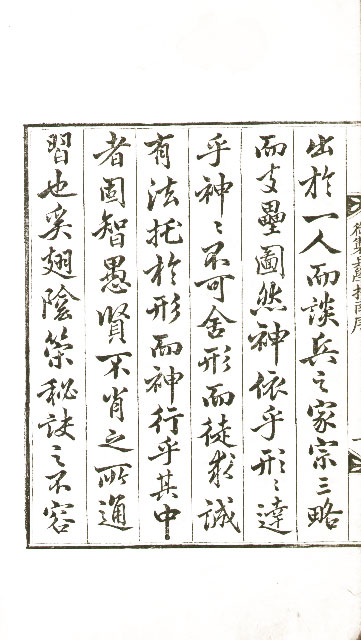 出於一人而談兵之家宗三略
而支壘圖然神依乎形〻達
乎神〻不可舍形而徒求誠
有法托於形而神行乎其中
者固智愚賢不肖之所通
習也奚翅陰符秘訣之不容